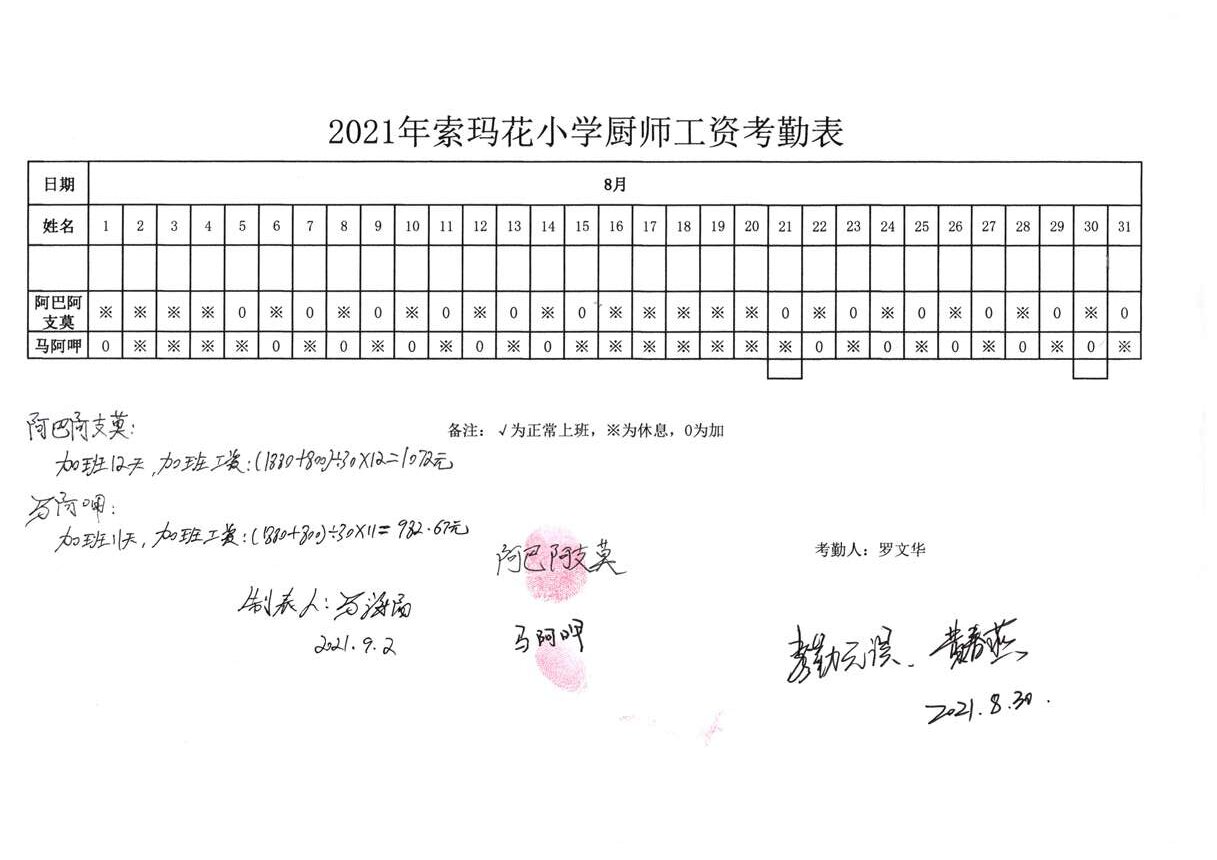 2021年索玛花小学厨师工资考勤表
日期 8月
姓名 1 2 3 4 5 6 7 8 9 10 11 12 13 14 15 16 17 18 19 20 21 22 23 24 25 26 27 28 29 30 31
阿巴阿支莫 ※ ※ ※ ※ 0 ※ 0 ※ 0 ※ 0 ※ 0 ※ 0 ※ ※ ※ ※ ※ 0 ※ 0 ※ 0 ※ 0 ※ 0 ※ 0
马阿呷 0 ※ ※ ※ ※ 0 ※ 0 ※ 0 ※ 0 ※ 0 ※ ※ ※ ※ ※ ※ ※ 0 ※ 0 ※ 0 ※ 0 ※ 0 ※
阿巴阿支莫:
备注: √为正常上班, ※为休息, 0为加
加班12天,加班工资:(1880+800)÷30×12=1072元
马阿呷:
加班11天,加班工资:(1880+800)÷30×11=982.67元
阿巴阿支莫
考勤人: 罗文华
制表人:马海
2021.9.2
马阿呷
考勤无误. 黄春燕
2021.8.30.